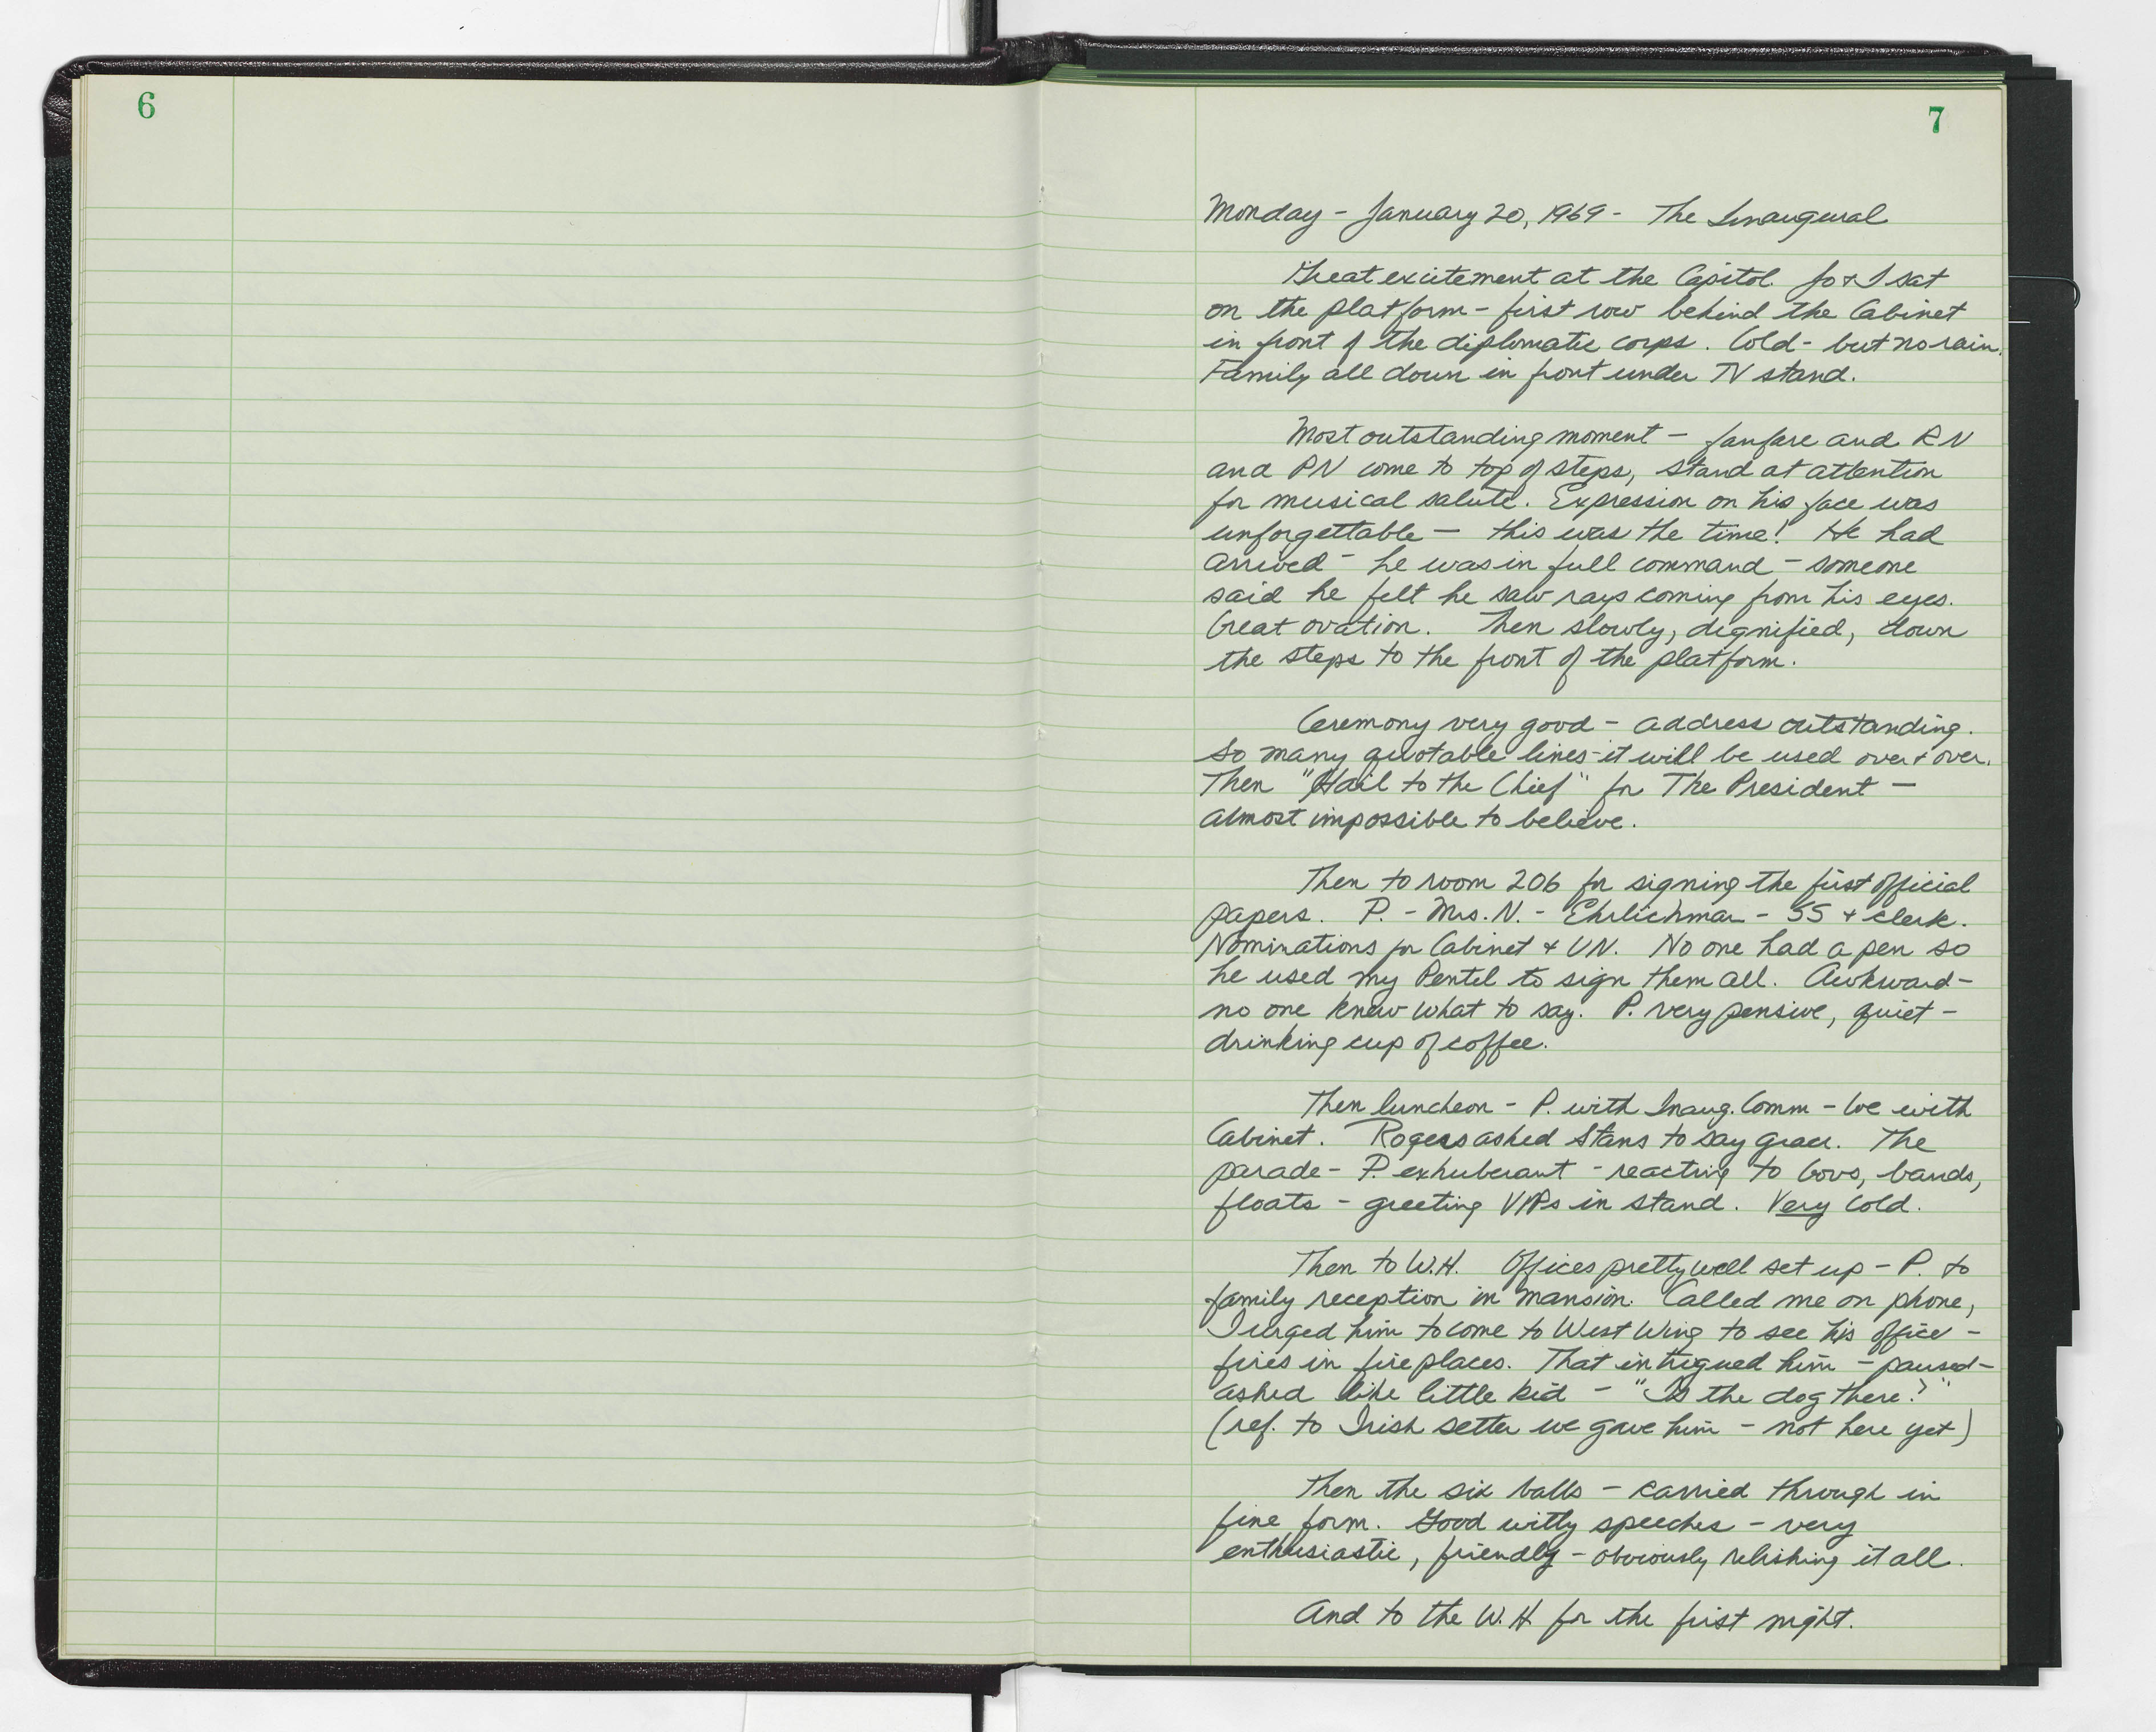 6
7
Monday - January 20, 1969 - The Inaugural
Great excitement at the Capitol. Jo & I sat
on the platform - first row behind the Cabinet
in front of the diplomatic corps. Cold - but no rain.
Family all down in front under TV stand.
Most outstanding moment - fanfare and RN
and PN come to top of steps, stand at attention
for musical salute. Expression on his face was
unforgettable - this was the time! He had
arrived - he was in full command - someone
said he felt he saw rays coming from his eyes.
Great ovation. Then slowly, dignified, down
the steps to the front of the platform.
Ceremony very good - address outstanding.
So many quotable lines - it will be used over & over.
Then "Hail to the Chief" for The President -
almost impossible to believe.
Then to room 206 for signing the first official
papers. P. - Mrs. N. - Ehrlichman - SS & clerk.
Nominations for Cabinet & UN. No one had a pen so
he used my Pentel to sign them all. Awkward -
no one knew what to say. P. very pensive, quiet -
drinking cup of coffee.
Then luncheon - P. with Inaug. Comm - we with
Cabinet. Rogers asked Stans to say grace. The
parade - P. exhuberant - reacting to Govs, bands,
floats - greeting VIPs in stand. Very cold.
Then to W.H. Offices pretty well set up - P. to
family reception in mansion. Called me on phone,
I urged him to come to West Wing to see his office -
fires in fireplaces. That intrigued him - paused -
asked like little kid - "Is the dog there?"
(ref. to Irish setter we gave him - not here yet)
Then the six balls - carried through in
fine form. Good witty speeches - very
enthusiastic, friendly - obviously relishing it all.
And to the W.H. for the first night.